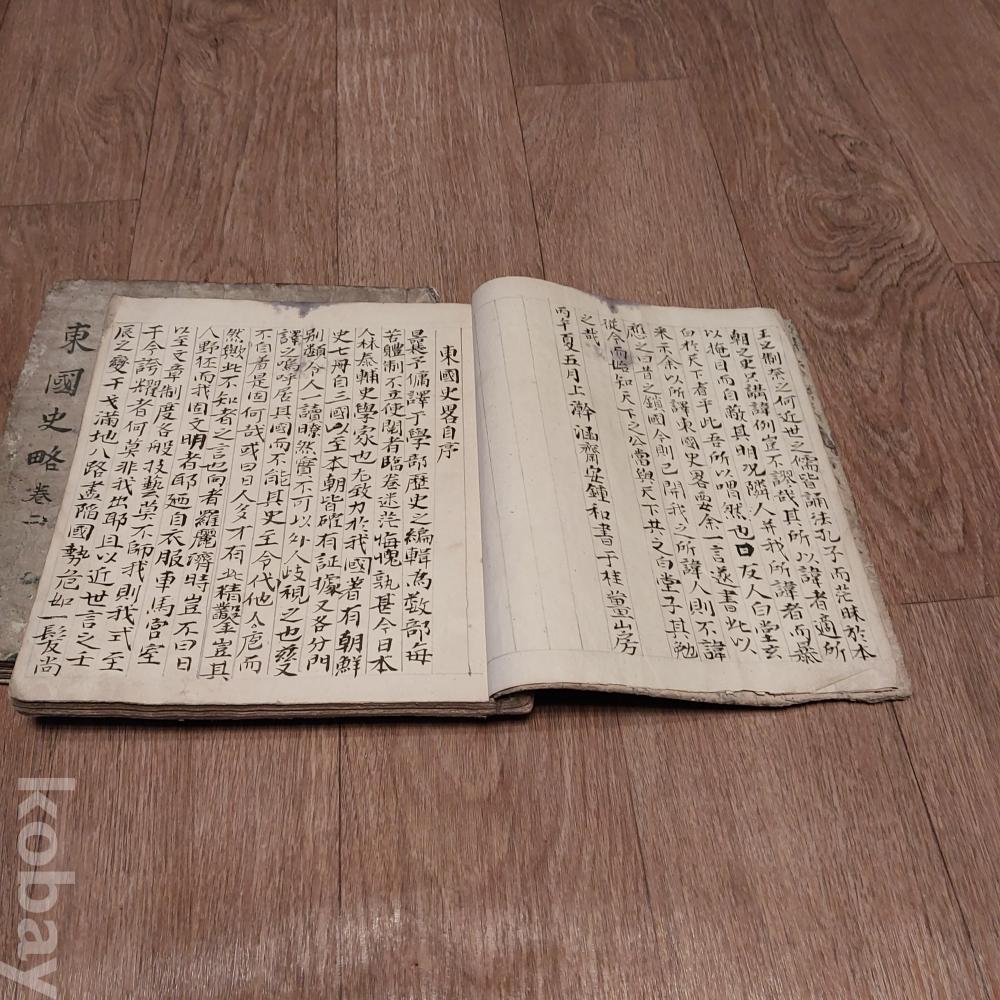 王又制秦之何近世之儒皆誦法孔子而茫昧於本
朝之史只講諱例豈不謬哉其所以諱者適所
以掩目而自敵其明況隣人幷我所諱者而暴
白於天下者乎此吾所以喟然也日友人白堂玄
采示余以所譯東國史畧要余一言遂書此以
應之曰昔之鎖國今則已開我之所諱人則不諱
從今而知天下之公當與天下共之白堂子其勉
之哉
丙午夏五月上澣涵齋安鍾和書于桂薑山房
東國史畧自序
曩予傭譯于學部歷史之編輯爲數部每
苦體制不立使閱者臨卷迷茫悔愧孰甚今日本
人林泰輔史學家也尤致力於我國著有朝鮮
史七冊自三國以至本朝皆確有証據又各分門
別類令人一讀瞭然實不可以外人歧視之也玆又
譯之嗚呼居其國而不能其史至今代他人庖而
不自羞是固何哉或曰日人多才有此精鑿豈其
然歟此不知者之言也向者羅麗濟時豈不曰日
人野狉而我固文明者耶廼自衣服車馬宮室
以至文章制度各般技藝莫不師我則我式至
于今誇耀者何莫非我出耶且以近世言之壬
辰之變干戈滿地八路盡陷國勢危如一髮尚
東國史略 卷二
kobay